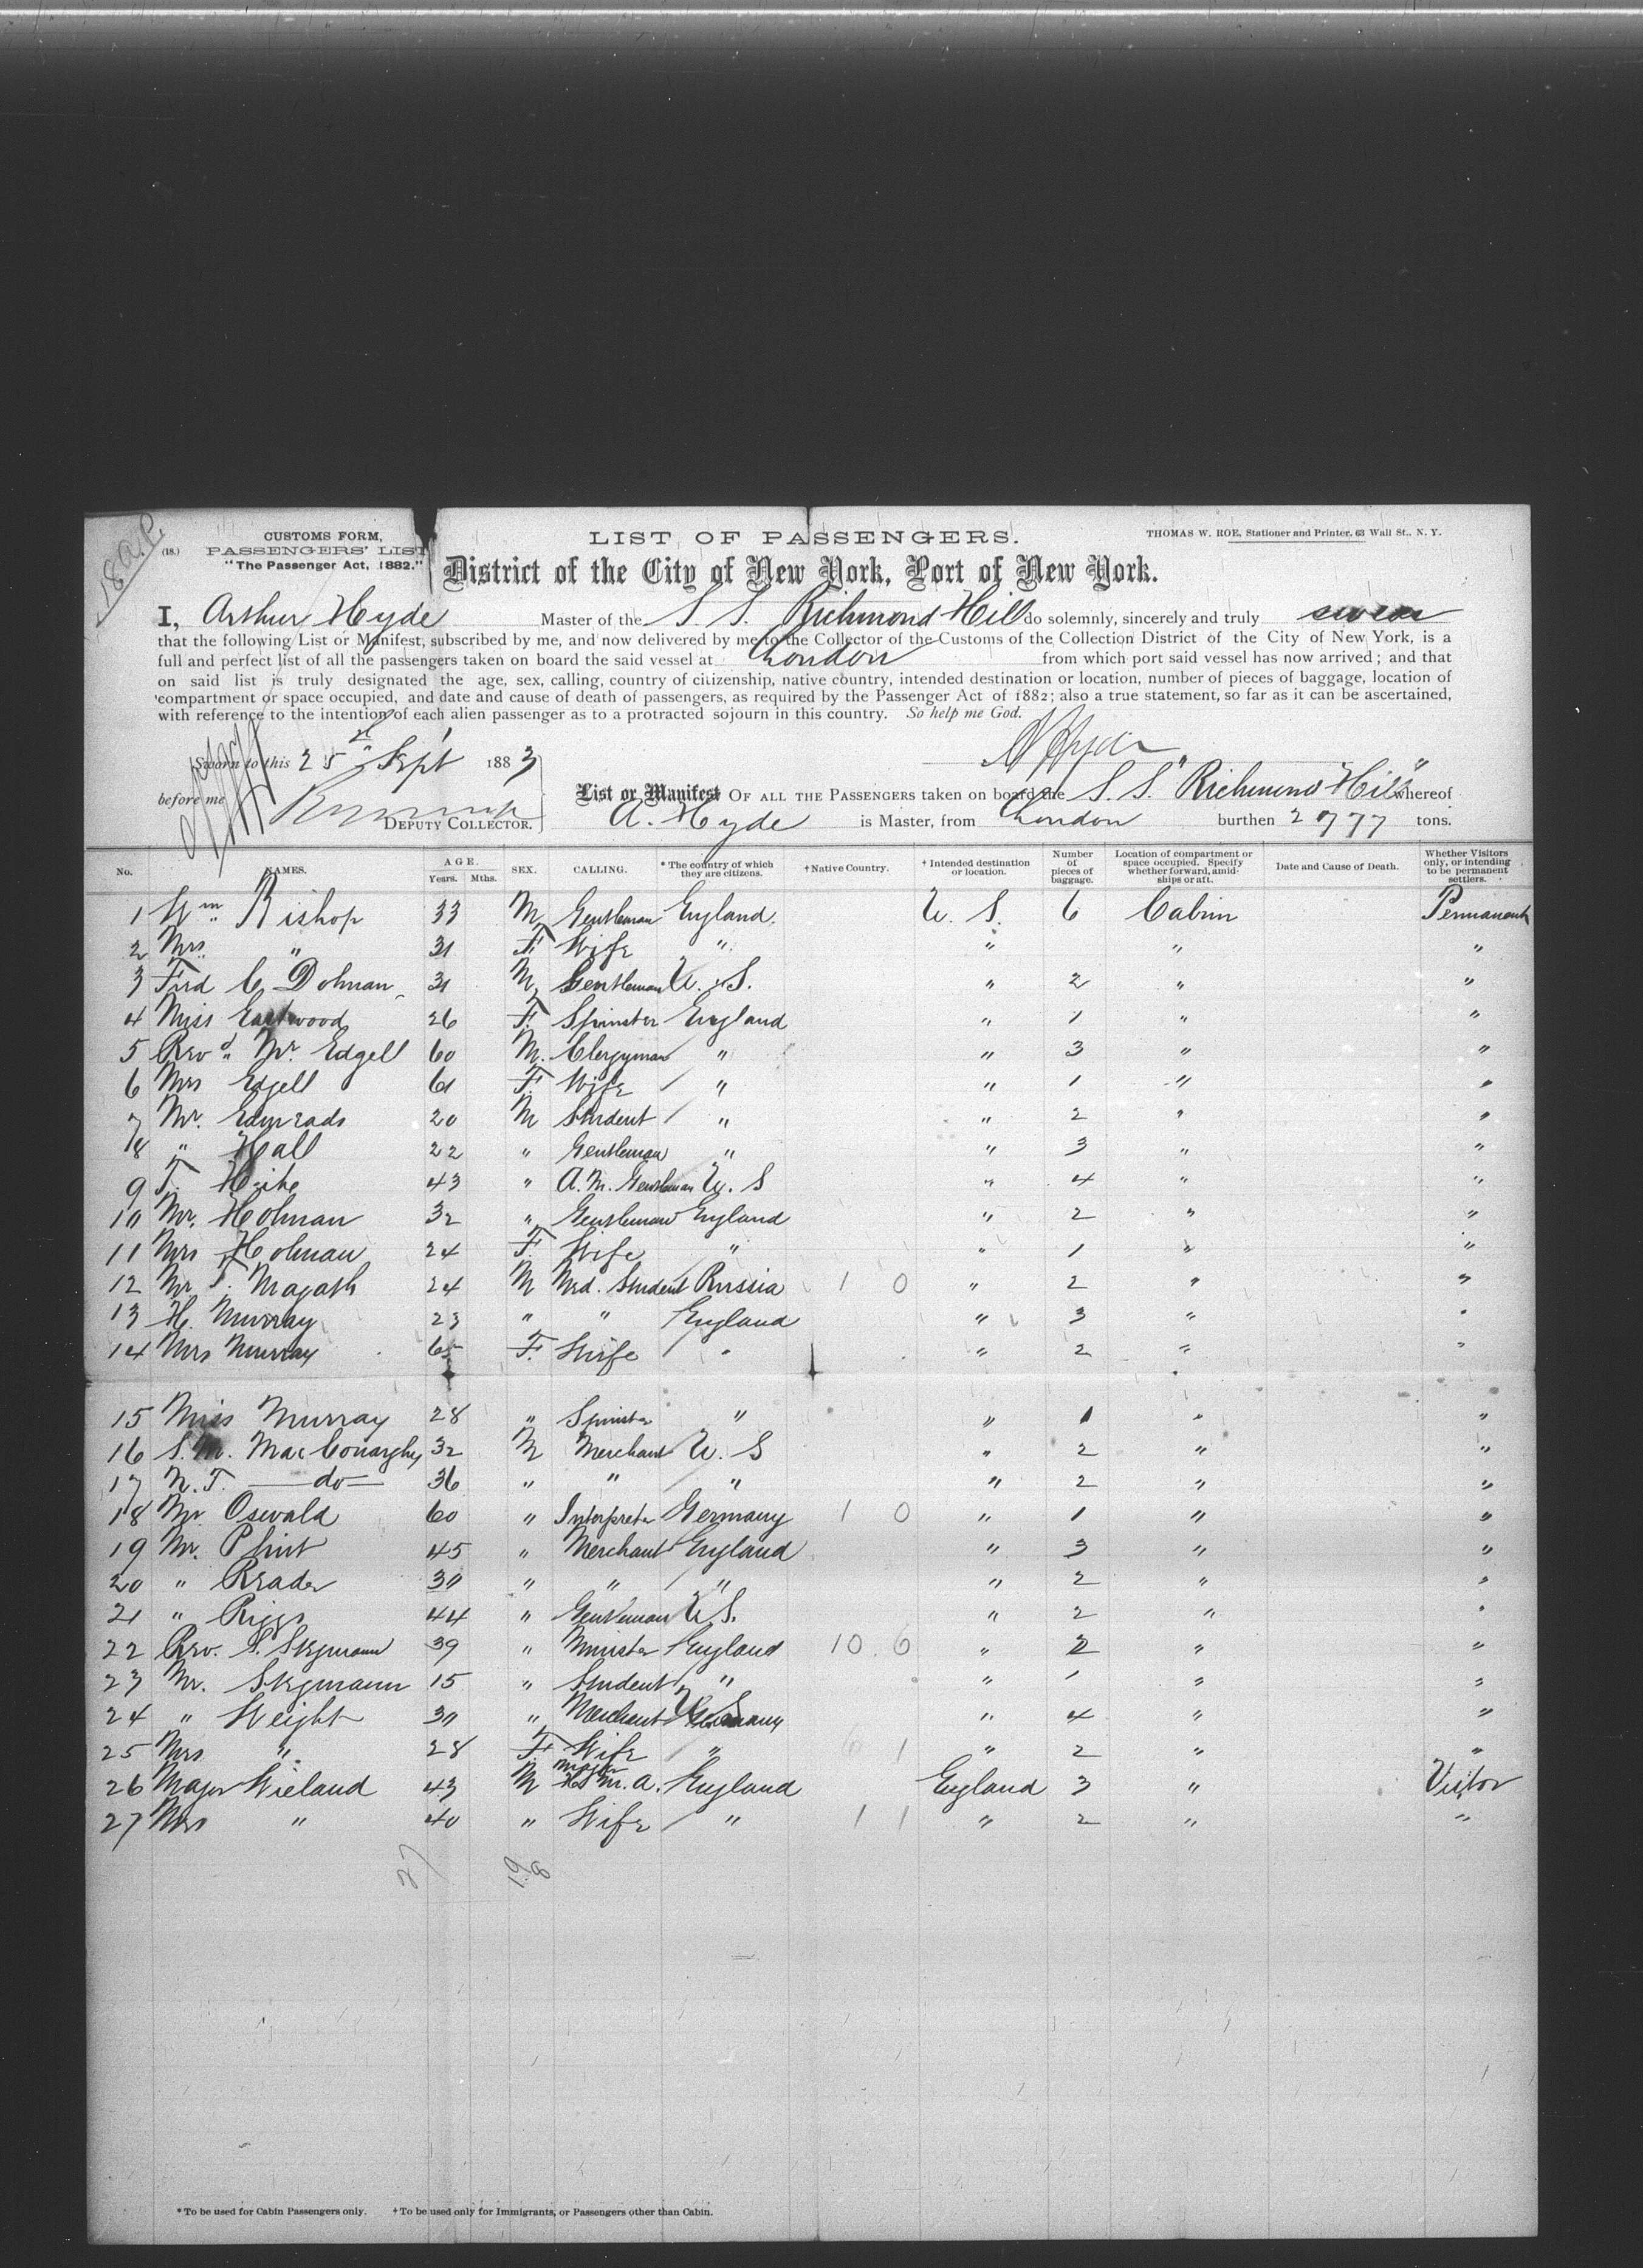 18 a.c.
(18.) CUSTOMS FORM,
PASSENGERS' LIST
"The Passenger Act, 1882."
LIST OF PASSENGERS.
THOMAS W. ROE, Stationer and Printer, 63 Wall St., N. Y.
District of the City of New York, Port of New York.
I, Arthur Hyde Master of the S. S. Richmond Hill do solemnly, sincerely and truly swear
that the following List or Manifest, subscribed by me, and now delivered by me to the Collector of the Customs of the Collection District of the City of New York, is a
full and perfect list of all the passengers taken on board the said vessel at London from which port said vessel has now arrived; and that
on said list is truly designated the age, sex, calling, country of citizenship, native country, intended destination or location, number of pieces of baggage, location of
compartment or space occupied, and date and cause of death of passengers, as required by the Passenger Act of 1882; also a true statement, so far as it can be ascertained,
with reference to the intention of each alien passenger as to a protracted sojourn in this country. So help me God.
Sworn to this 25th Sept 1883 A Hyde
before me
DEPUTY COLLECTOR.
List or Manifest OF ALL THE PASSENGERS taken on board the S. S. "Richmond Hill" whereof
A. Hyde is Master, from London burthen 2777 tons.
No. NAMES. AGE. Years. Mths. SEX. CALLING. * The country of which they are citizens. † Native Country. † Intended destination or location. Number of pieces of baggage. Location of compartment or space occupied. Specify whether forward, amidships or aft. Date and Cause of Death. Whether Visitors only, or intending to be permanent settlers.
1 Wm Bishop 33 M Gentleman England U. S. 6 Cabin Permanent
2 Mrs " 31 F. Wife " " " "
3 Fred C. Dolman 31 M Gentleman U. S. " 2 " "
4 Miss Eastwood 26 F. Spinster England " 1 " "
5 Revd Mr. Edgell 60 M. Clergyman " " 3 " "
6 Mrs Edgell 61 F. Wife " " 1 " "
7 Mr. 20 M Student " " 2 " "
8 " Hall 22 " Gentleman " " 3 " "
9 T. 43 " A.M. Gentleman U. S " 4 " "
10 Mr. Holman 32 " Gentleman England " 2 " "
11 Mrs Holman 24 F. Wife " " 1 " "
12 Mr T. Magath 24 M Med. Student Russia 1 0 " 2 " "
13 H. Murray 23 " " England " 3 " "
14 Mrs Murray 65 F. Wife " " 2 " "
15 Miss Murray 28 " Spinster " " 1 " "
16 S. M. MacConarghy 32 M Merchant U. S " 2 " "
17 N. T. do 36 " " " " 2 " "
18 Mr Oswald 60 " Interpreter Germany 1 0 " 1 " "
19 Mr. Plint 45 " Merchant England " 3 " "
20 " Reader 30 " " " " 2 " "
21 " Riggs 44 " Gentleman U. S. " 2 " "
22 Rev. S. Stegmann 39 " Minister England 10 6 " 2 " "
23 Mr. Stegmann 15 " Student " " 1 " "
24 " Weight 30 " Merchant U. S Germany " 4 " "
25 Mrs " 28 F Wife " 6 1 " 2 " "
26 Major Wieland 43 M Major H. M. A. England England 3 " Visitor
27 Mrs " 40 " Wife " 1 1 " 2 " "
27 19 8
* To be used for Cabin Passengers only. † To be used only for Immigrants, or Passengers other than Cabin.